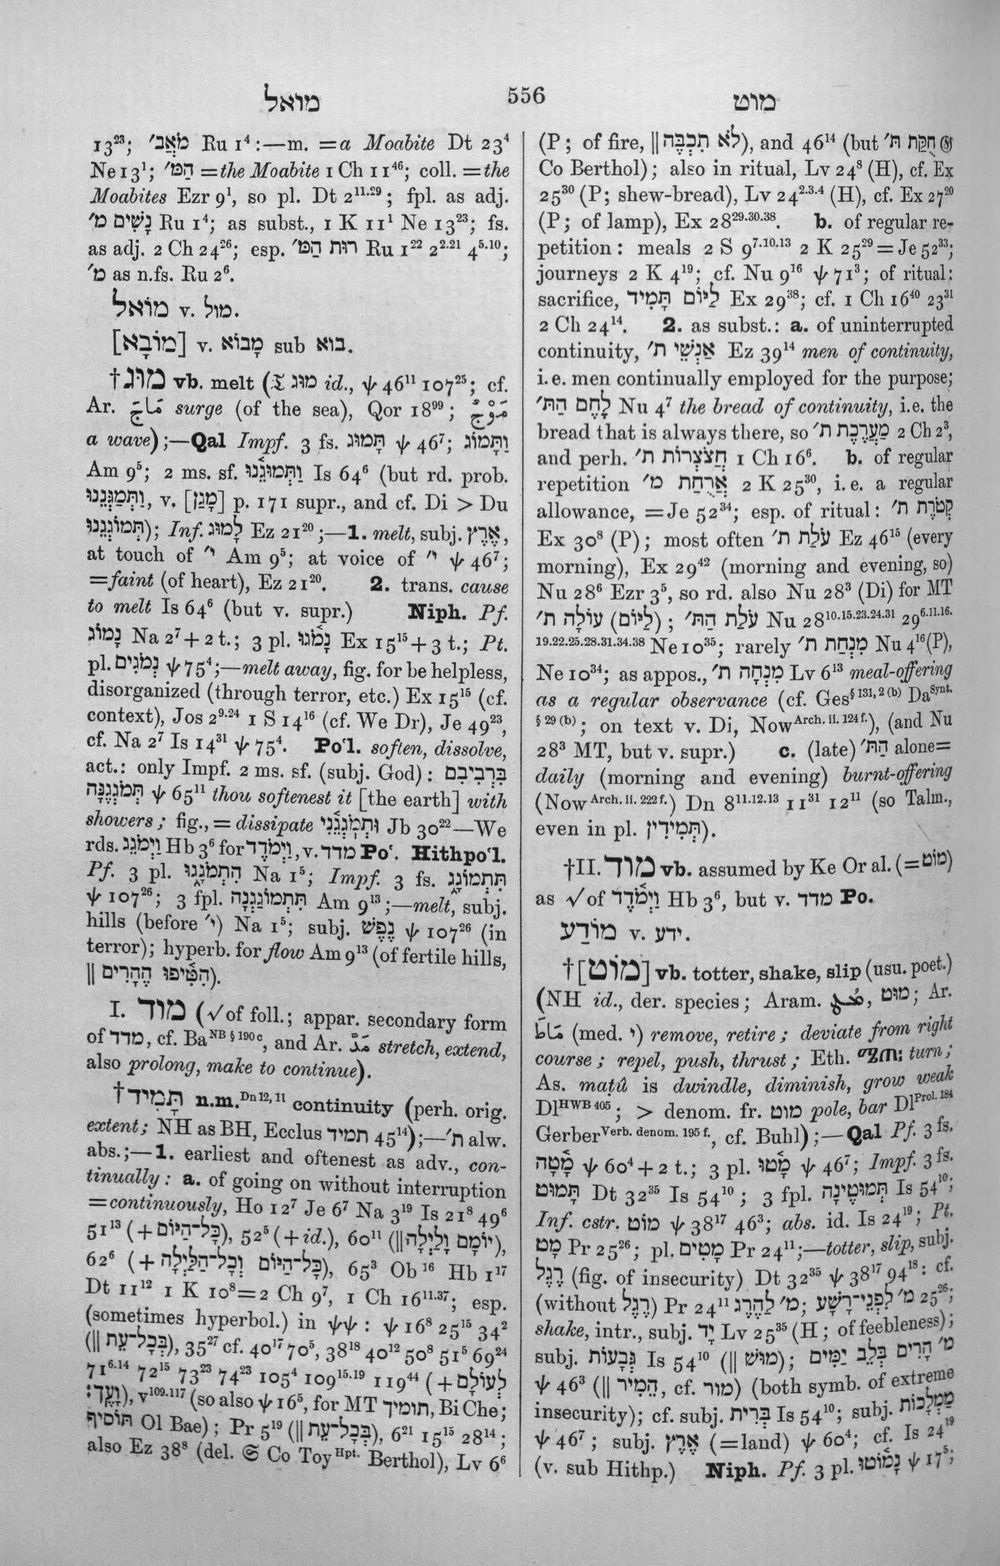 מואל
556
מוט
13²³; מֹאֲב׳ Ru 1⁴:—m. =a Moabite Dt 23⁴
Ne 13¹; הַמּ׳ =the Moabite 1 Ch 11⁴⁶; coll. =the
Moabites Ezr 9¹, so pl. Dt 2¹¹·²⁹; fpl. as adj.
נָשִׁים מ׳ Ru 1⁴; as subst., 1 K 11¹ Ne 13²³; fs.
as adj. 2 Ch 24²⁶; esp. רוּת הַמּ׳ Ru 1²² 2²·²¹ 4⁵·¹⁰;
מ׳ as n.fs. Ru 2⁶.
מוֹאל v. מול.
[מוֹבָא] v. מָבוֹא sub בוא.
†מוּג vb. melt (𝔗 מוּג id., ψ 46¹¹ 107²⁵; cf.
Ar. مَاجَ surge (of the sea), Qor 18⁹⁹; مَوْجٌ
a wave);—Qal Impf. 3 fs. תָּמוּג ψ 46⁷; וַתָּמוֹג
Am 9⁵; 2 ms. sf. וַתְּמוּגֵנוּ Is 64⁶ (but rd. prob.
וַתְּמַגְּנֵנוּ, v. [מָגַן] p. 171 supr., and cf. Di > Du
תְּמוֹגְגֵנוּ); Inf. לָמוּג Ez 21²⁰;—1. melt, subj. אֶרֶץ,
at touch of ״י Am 9⁵; at voice of ״י ψ 46⁷;
=faint (of heart), Ez 21²⁰. 2. trans. cause
to melt Is 64⁶ (but v. supr.) Niph. Pf.
נָמוֹג Na 2⁷+2 t.; 3 pl. נָמֹגוּ Ex 15¹⁵+3 t.; Pt.
pl. נְמֹגִים ψ 75⁴;—melt away, fig. for be helpless,
disorganized (through terror, etc.) Ex 15¹⁵ (cf.
context), Jos 2⁹·²⁴ 1 S 14¹⁶ (cf. We Dr), Je 49²³,
cf. Na 2⁷ Is 14³¹ ψ 75⁴. Po‘l. soften, dissolve,
act.: only Impf. 2 ms. sf. (subj. God): בִּרְבִיבִם
תְּמֹגְגֶנָּה ψ 65¹¹ thou softenest it [the earth] with
showers; fig., =dissipate וּתְמֹגְגֵנִי Jb 30²²—We
rds. וַיְמֹגֵג Hb 3⁶ for וַיְמֹדֶד, v. מדד Po‘. Hithpo‘l.
Pf. 3 pl. הִתְמֹגָגוּ Na 1⁵; Impf. 3 fs. תִּתְמוֹגָג
ψ 107²⁶; 3 fpl. תִּתְמוֹגַגְנָה Am 9¹³;—melt, subj.
hills (before ״י) Na 1⁵; subj. נֶפֶשׁ ψ 107²⁶ (in
terror); hyperb. for flow Am 9¹³ (of fertile hills,
|| הִטִּיפוּ הֶהָרִים).
I. מוד (√of foll.; appar. secondary form
of מדד, cf. Ba ᴺᴮ § ¹⁹⁰ ᶜ, and Ar. مَدَّ stretch, extend,
also prolong, make to continue).
†תָּמִיד n.m. Dn 12, 11 continuity (perh. orig.
extent; NH as BH, Ecclus תמיד 45¹⁴);—ת׳ alw.
abs.;—1. earliest and oftenest as adv., con-
tinually: a. of going on without interruption
=continuously, Ho 12⁷ Je 6⁷ Na 3¹⁹ Is 21⁸ 49⁶
51¹³ (+כָּל־הַיּוֹם), 52⁵ (+id.), 60¹¹ (||יוֹמָם וָלַיְלָה),
62⁶ (+כָּל־הַיּוֹם וְכָל־הַלַּיְלָה), 65³ Ob¹⁶ Hb 1¹⁷
Dt 11¹² 1 K 10⁸=2 Ch 9⁷, 1 Ch 16¹¹·³⁷; esp.
(sometimes hyperbol.) in ψψ: ψ 16⁸ 25¹⁵ 34²
(|| בְּכָל־עֵת), 35²⁷ cf. 40¹⁷ 70⁵, 38¹⁸ 40¹² 50⁸ 51⁵ 69²⁴
71⁶·¹⁴ 72¹⁵ 73²³ 74²³ 105⁴ 109¹⁵·¹⁹ 119⁴⁴ (+לְעוֹלָם
וָעֶד), v¹⁰⁹·¹¹⁷ (so also ψ 16⁵, for MT תומיך, Bi Che;
תּוֹסִיף Ol Bae); Pr 5¹⁹ (|| בְּכָל־עֵת), 6²¹ 15¹⁵ 28¹⁴;
also Ez 38⁸ (del. 𝔖 Co Toy ᴴᵖᵗ· Berthol), Lv 6⁶
(P; of fire, || לֹא תִכְבֶּה), and 46¹⁴ (but חֻקַּת ת׳ 𝔊
Co Berthol); also in ritual, Lv 24⁸ (H), cf. Ex
25³⁰ (P; shew-bread), Lv 24²·³·⁴ (H), cf. Ex 27²⁰
(P; of lamp), Ex 28²⁹·³⁰·³⁸. b. of regular re-
petition: meals 2 S 9⁷·¹⁰·¹³ 2 K 25²⁹=Je 52³³;
journeys 2 K 4¹⁹; cf. Nu 9¹⁶ ψ 71³; of ritual:
sacrifice, לַיּוֹם תָּמִיד Ex 29³⁸; cf. 1 Ch 16⁴⁰ 23³¹
2 Ch 24¹⁴. 2. as subst.: a. of uninterrupted
continuity, אַנְשֵׁי ת׳ Ez 39¹⁴ men of continuity,
i.e. men continually employed for the purpose;
לֶחֶם הַתּ׳ Nu 4⁷ the bread of continuity, i.e. the
bread that is always there, so מַעֲרֶכֶת ת׳ 2 Ch 2³,
and perh. חֲצֹצְרוֹת ת׳ 1 Ch 16⁶. b. of regular
repetition אֲרֻחַת מ׳ 2 K 25³⁰, i.e. a regular
allowance, =Je 52³⁴; esp. of ritual: קְטֹרֶת ת׳
Ex 30⁸ (P); most often עֹלַת ת׳ Ez 46¹⁵ (every
morning), Ex 29⁴² (morning and evening, so)
Nu 28⁶ Ezr 3⁵, so rd. also Nu 28³ (Di) for MT
עוֹלָה ת׳ (לַיּוֹם); עֹלַת הַתּ׳ Nu 28¹⁰·¹⁵·²³·²⁴·³¹ 29⁶·¹¹·¹⁶·
¹⁹·²²·²⁵·²⁸·³¹·³⁴·³⁸ Ne 10³⁵; rarely מִנְחַת ת׳ Nu 4¹⁶(P),
Ne 10³⁴; as appos., מִנְחָה ת׳ Lv 6¹³ meal-offering
as a regular observance (cf. Ges § 131, 2 (b) Da Synt.
§ 29 (b); on text v. Di, Now Arch. ii. 124 f.), (and Nu
28³ MT, but v. supr.) c. (late) הַתּ׳ alone=
daily (morning and evening) burnt-offering
(Now Arch. ii. 222 f.) Dn 8¹¹·¹²·¹³ 11³¹ 12¹¹ (so Talm.,
even in pl. תְּמִידִין).
†II. מוד vb. assumed by Ke Or al. (=מוט)
as √of וַיְמֹדֶד Hb 3⁶, but v. מדד Po.
מוֹדַע v. ידע.
†[מוֹט] vb. totter, shake, slip (usu. poet.)
(NH id., der. species; Aram. , מוט; Ar.
مَاطَ (med. י) remove, retire; deviate from right
course; repel, push, thrust; Eth. turn;
As. maṭû is dwindle, diminish, grow weak
Dl ᴴᵂᴮ ⁴⁰⁵; > denom. fr. מוט pole, bar Dl Prol. 184
Gerber Verb. denom. 195 f., cf. Buhl);—Qal Pf. 3 fs.
מָטָה ψ 60⁴+2 t.; 3 pl. מָטוּ ψ 46⁷; Impf. 3 fs.
תָּמוּט Dt 32³⁵ Is 54¹⁰; 3 fpl. תְּמוּטֶינָה Is 54¹⁰;
Inf. cstr. מוֹט ψ 38¹⁷ 46³; abs. id. Is 24¹⁹; Pt.
מָט Pr 25²⁶; pl. מָטִים Pr 24¹¹;—totter, slip, subj.
רֶגֶל (fig. of insecurity) Dt 32³⁵ ψ 38¹⁷ 94¹⁸: cf.
(without רֶגֶל) Pr 24¹¹ מ׳ לַהֶרֶג; מ׳ לִפְנֵי־רָשָׁע 25²⁶;
shake, intr., subj. יָד Lv 25³⁵ (H; of feebleness);
subj. גְּבָעוֹת Is 54¹⁰ (|| מוּשׁ); מ׳ הָרִים בְּלֵב יַמִּים
ψ 46³ (|| הָמִיר, cf. מור) (both symb. of extreme
insecurity); cf. subj. בְּרִית Is 54¹⁰; subj. מַמְלָכוֹת
ψ 46⁷; subj. אֶרֶץ (=land) ψ 60⁴; cf. Is 24¹⁹
(v. sub Hithp.) Niph. Pf. 3 pl. נָמוֹטוּ ψ 17⁵;